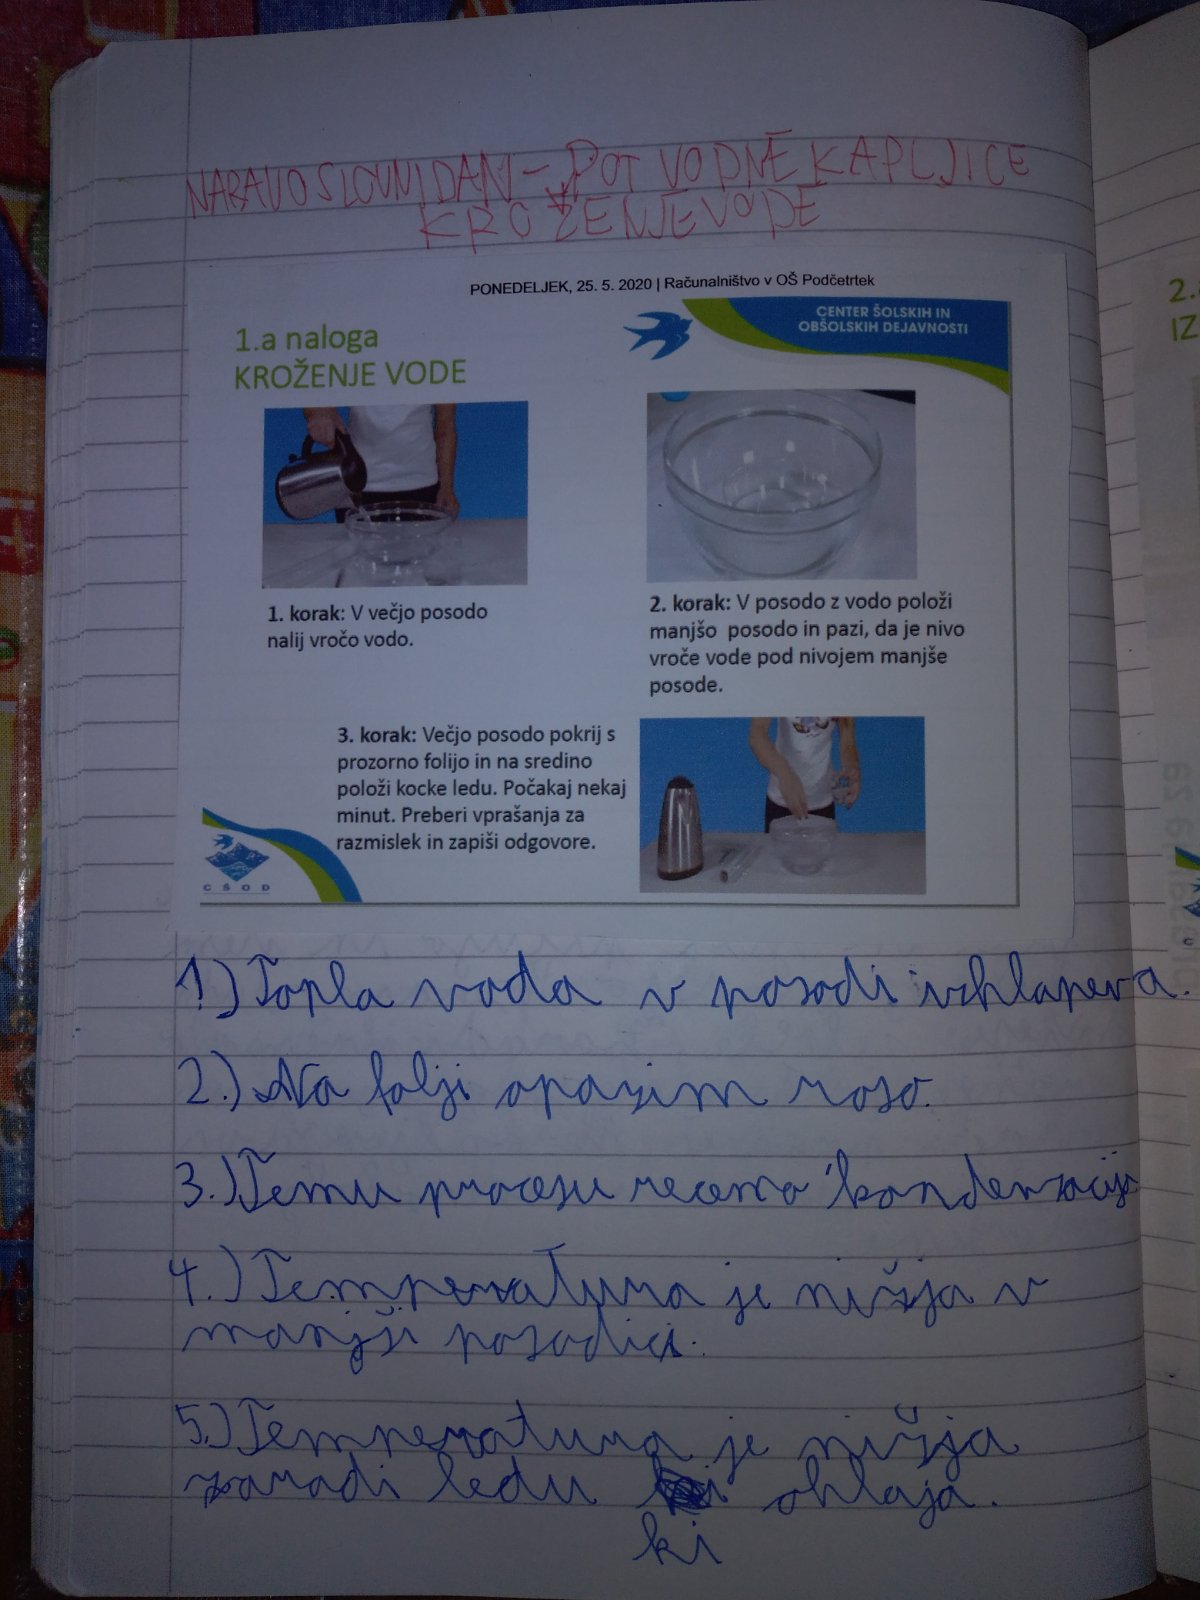 NARAVOSLOVNI DAN - POT VODNE KAPLJICE
KROŽENJE VODE
PONEDELJEK, 25. 5. 2020 | Računalništvo v OŠ Podčetrtek
CENTER ŠOLSKIH IN
OBŠOLSKIH DEJAVNOSTI
1.a naloga
KROŽENJE VODE
1. korak: V večjo posodo
nalij vročo vodo.
2. korak: V posodo z vodo položi
manjšo posodo in pazi, da je nivo
vroče vode pod nivojem manjše
posode.
3. korak: Večjo posodo pokrij s
prozorno folijo in na sredino
položi kocke ledu. Počakaj nekaj
minut. Preberi vprašanja za
razmislek in zapiši odgovore.
CŠOD
1.) Topla voda v posodi izhlapeva.
2.) Na folji opazim roso.
3.) Temu procesu recemo kondenzacija
4.) Temperatura je nižja v
manjši posodici.
5.) Temperatura je nižja
zaradi ledu ohlaja.
ki
2.
IZ